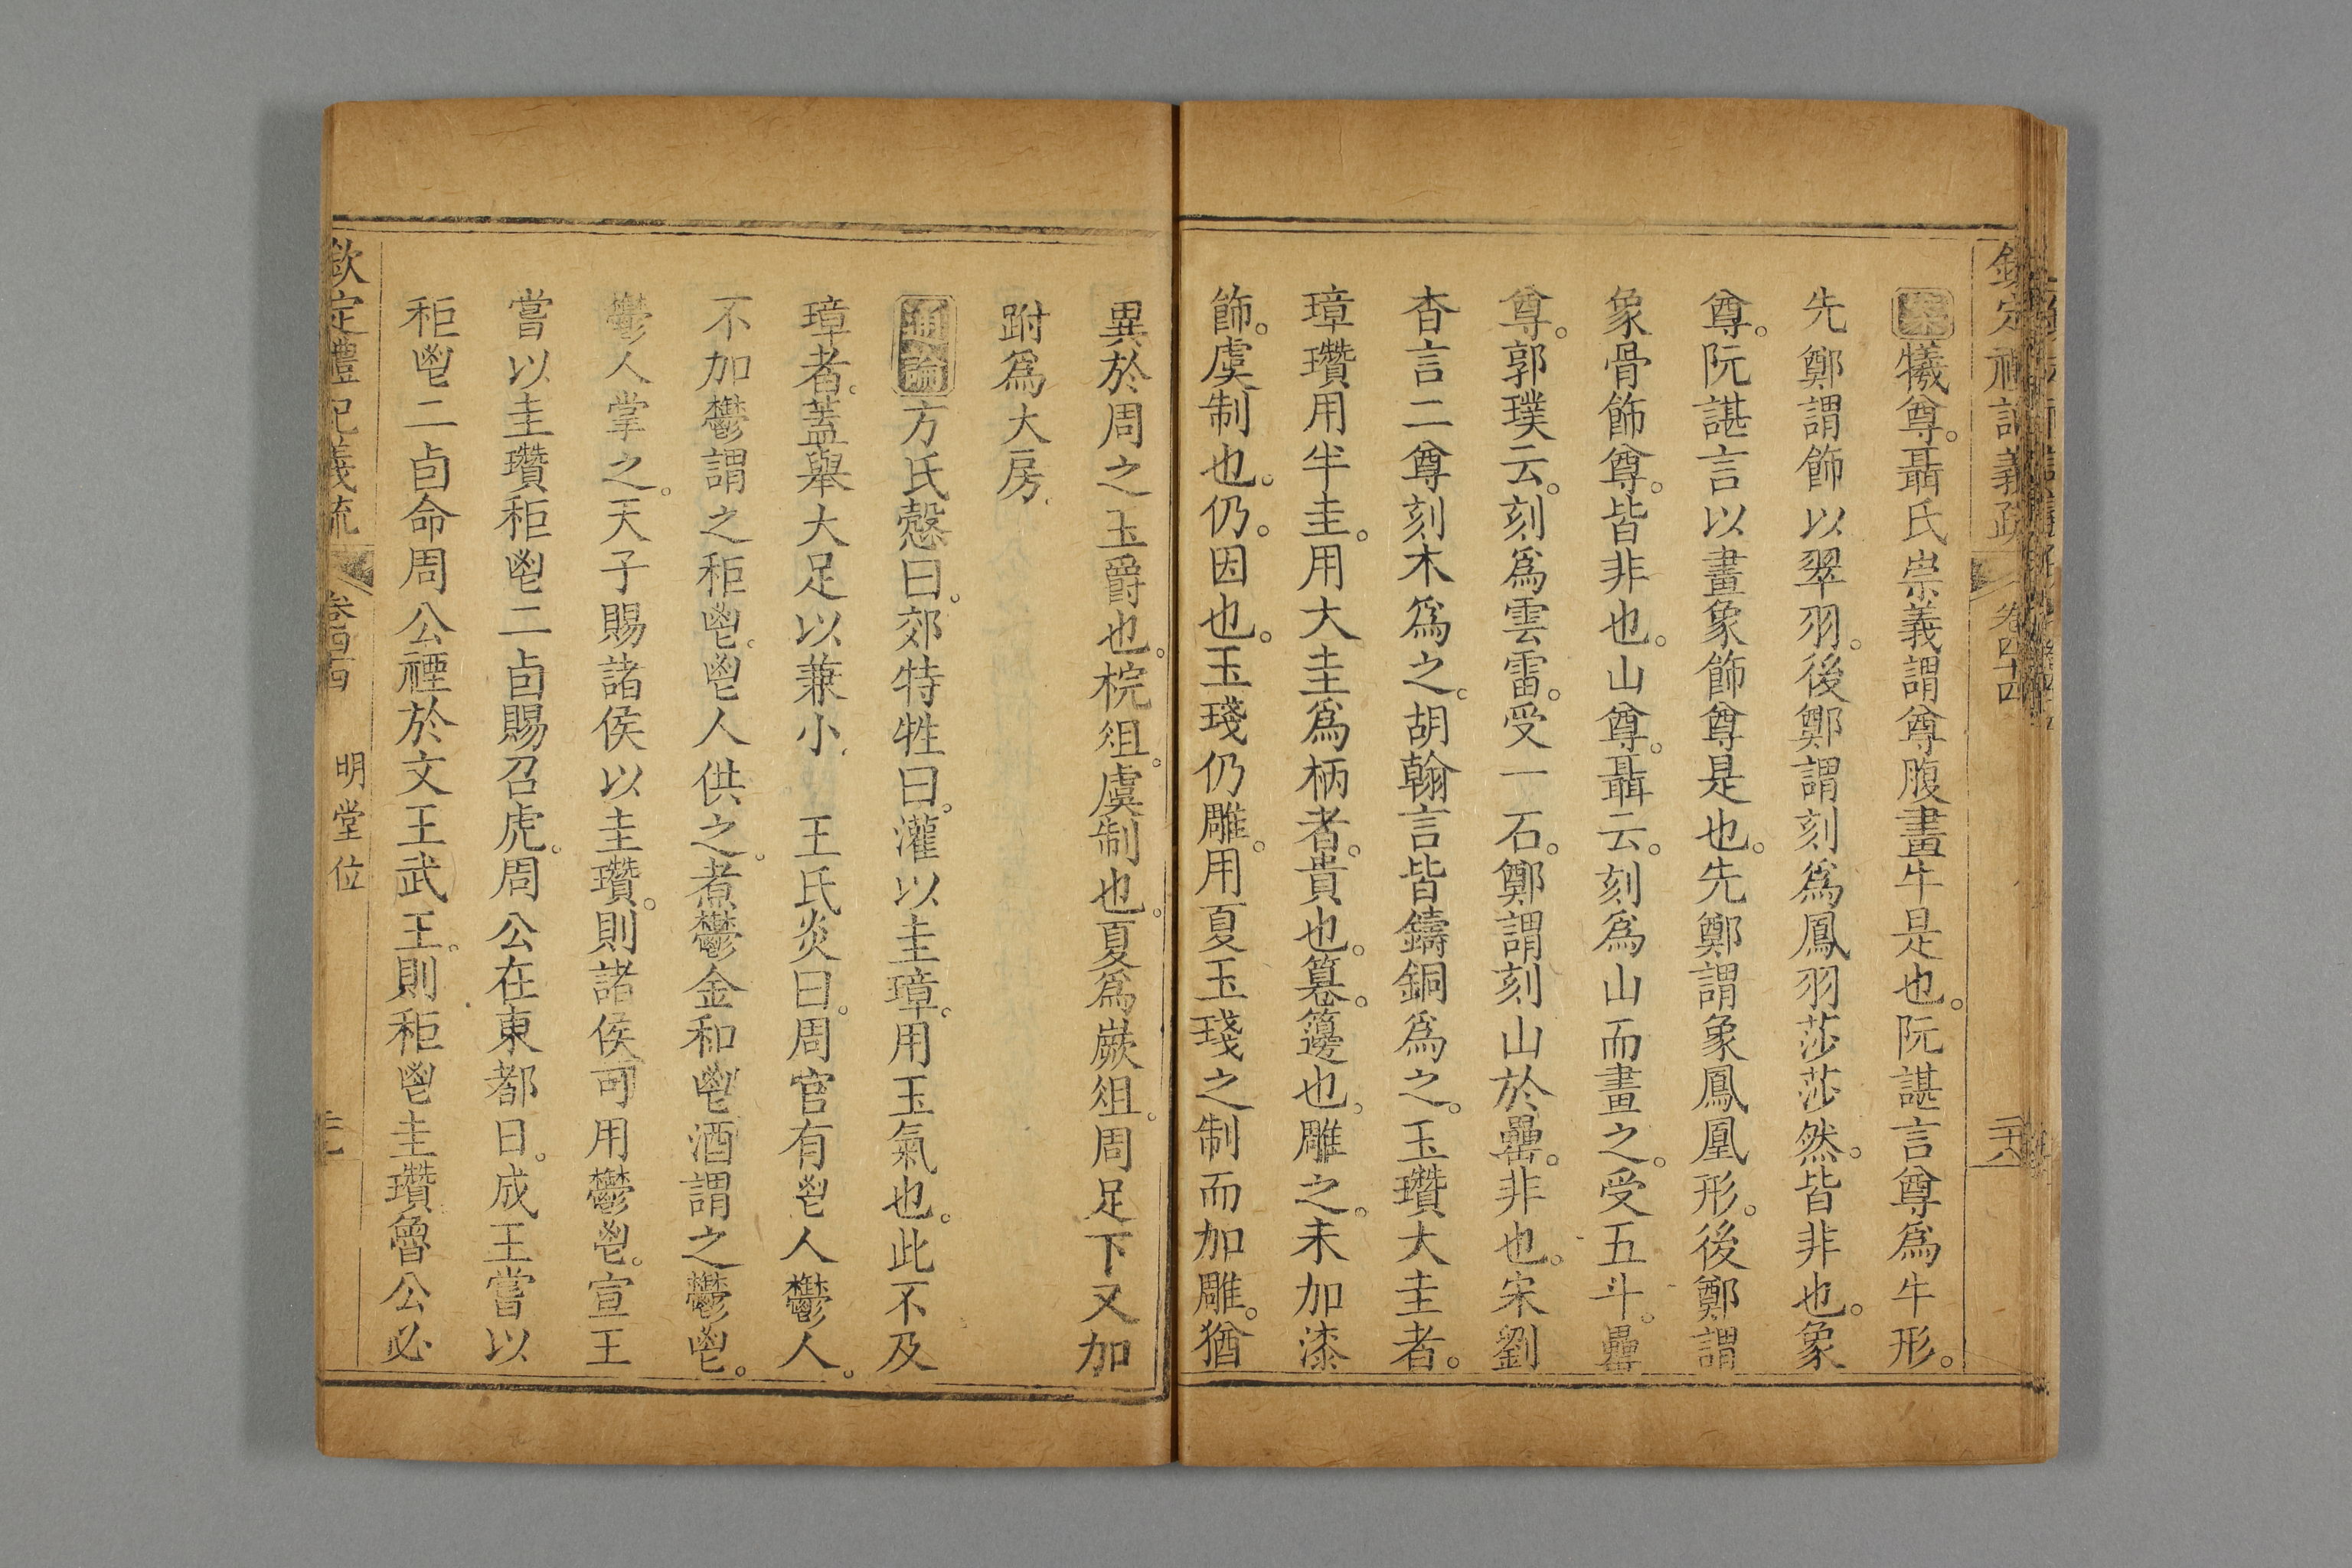 欽定禮記義疏 卷四十四 二十八
案犧尊。聶氏崇義謂尊腹畫牛是也。阮諶言尊爲牛形。
先鄭謂飾以翠羽。後鄭謂刻爲鳳羽莎莎然。皆非也。象
尊。阮諶言以畫象飾尊是也。先鄭謂象鳳凰形。後鄭謂
象骨飾尊。皆非也。山尊。聶云。刻爲山而畫之。受五斗。罍
尊。郭璞云。刻爲雲雷。受一石。鄭謂刻山於罍。非也。宋劉
杳言二尊刻木爲之。胡翰言皆鑄銅爲之。玉瓚大圭者。
璋瓚用半圭。用大圭爲柄者。貴也。篹。籩也。雕之。未加漆
飾。虞制也。仍。因也。玉琖仍雕。用夏玉琖之制而加雕。猶
異於周之玉爵也。梡俎。虞制也。夏爲嶡俎。周足下又加
跗爲大房。
通論方氏慤曰。郊特牲曰。灌以圭璋。用玉氣也。此不及
璋者。蓋舉大足以兼小。 王氏炎曰。周官有鬯人鬱人。
不加鬱謂之秬鬯。鬯人供之。煮鬱金和鬯酒謂之鬱鬯。
鬱人掌之。天子賜諸侯以圭瓚。則諸侯可用鬱鬯。宣王
嘗以圭瓚秬鬯二卣賜召虎。周公在東都日。成王嘗以
秬鬯二卣命周公禋於文王武王。則秬鬯圭瓚魯公必
欽定禮記義疏 卷四十四 明堂位